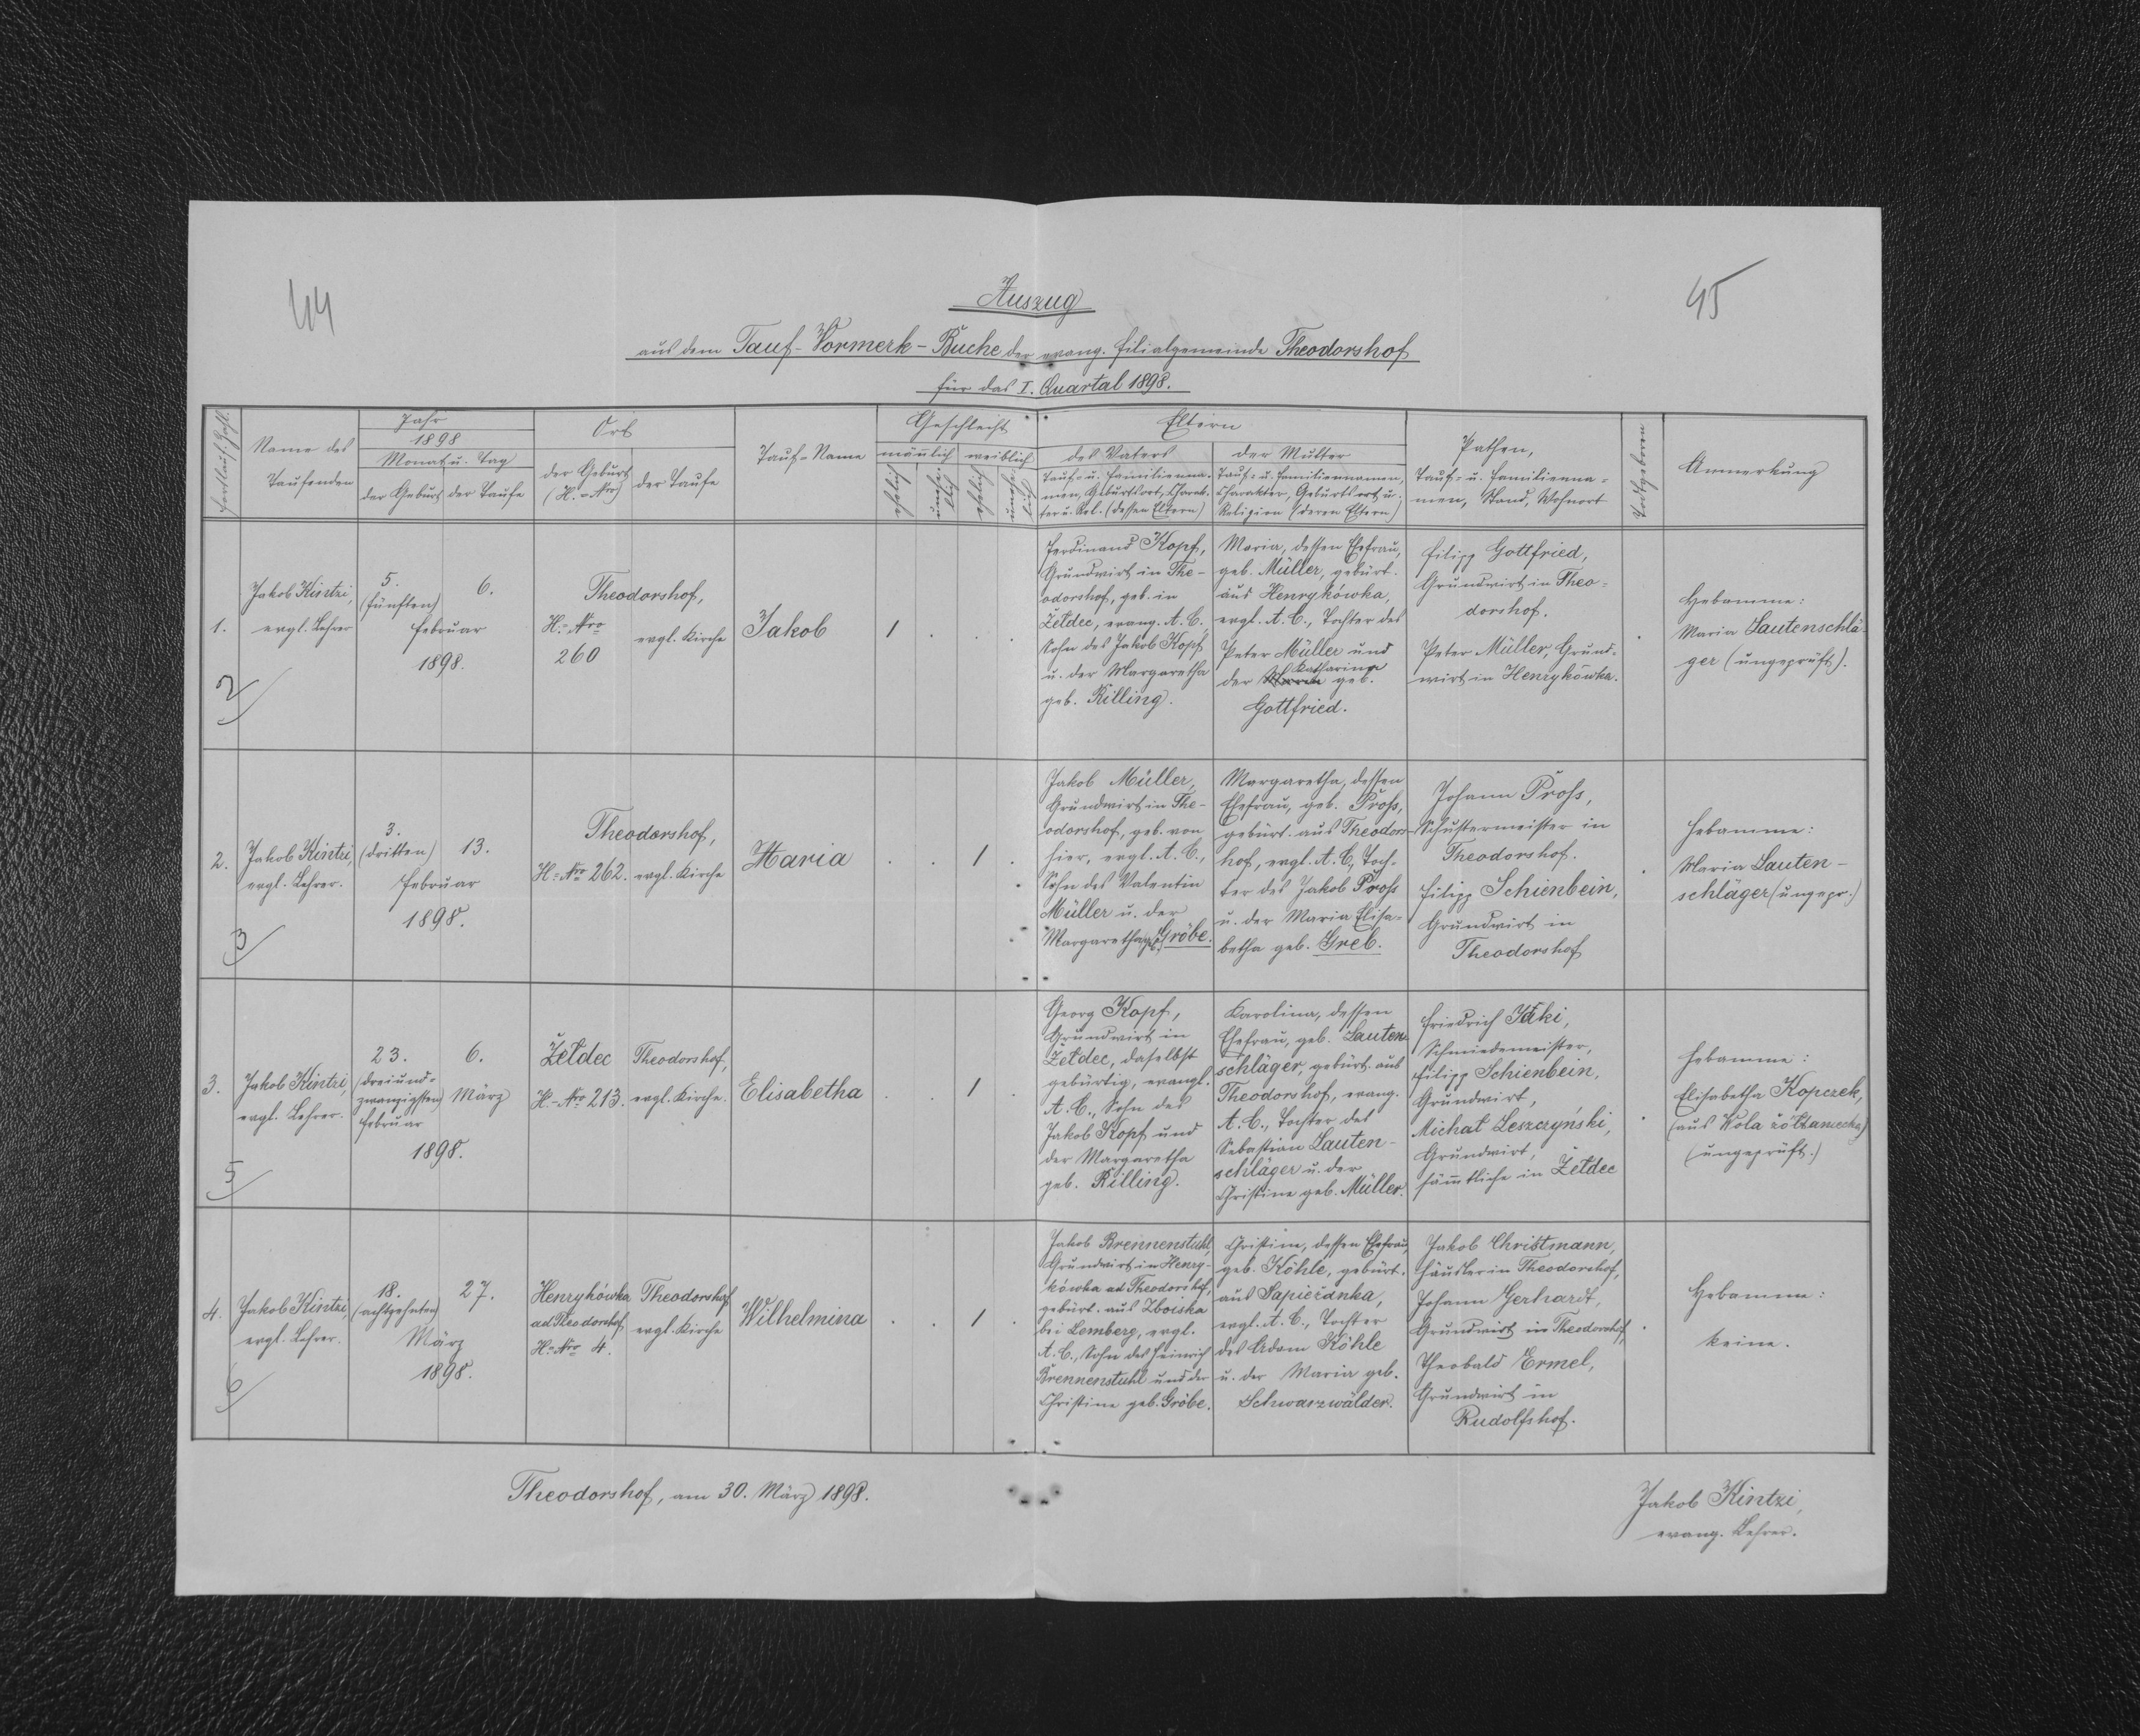 44
45
Auszug
aus dem Tauf-Vormerk-Buche der evang. Filialgemeinde Theodorshof
für das I. Quartal 1898.
Fortlauf. Zahl.
Name des
Taufenden
Jahr
1898
Monat u. Tag
der Geburt
der Taufe
Ort
der Geburt
(H.=Nro)
der Taufe
Tauf-Name
Geschlecht
männlich
weiblich
ehelich
unehe-
lich
ehelich
unehe-
lich
Eltern
des Vaters
Tauf- u. Familienna-
men, Geburtsort, Charak-
ter u. Rel. (dessen Eltern)
der Mutter
Tauf- u. Familiennamen,
Charakter, Geburtsort u.
Religion (deren Eltern)
Pathen,
Tauf- u. Familienna-
men, Stand, Wohnort
Todtgeboren
Anmerkung
1.
2
Jakob Kintzi,
evgl. Lehrer
5.
(fünften)
6.
Februar
1898.
Theodorshof,
H.=Nro
260
evgl. Kirche
Jakob
1
.
.
.
Ferdinand Kopf,
Grundwirt in The-
odorshof, geb. in
Żełdec, evang. A. C.
Sohn des Jakob Kopf
u. der Margaretha
geb. Rilling.
Maria, dessen Ehefrau,
geb. Müller, gebürt.
aus Henrykówka,
evgl. A. C., Tochter des
Peter Müller und
Katharina
der Maria geb.
Gottfried.
Filipp Gottfried,
Grundwirt in Theo-
dorshof.
Peter Müller, Grund-
wirt in Henrykówka.
.
Hebamme:
Maria Lautenschlä-
ger (ungeprüft).
2.
3
Jakob Kintzi,
evgl. Lehrer.
3.
(dritten)
13.
Februar
1898.
Theodorshof,
H.=Nro 262.
evgl. Kirche
Maria
.
.
1
.
Jakob Müller,
Grundwirt in The-
odorshof, geb. von
hier, evgl. A. C.,
Sohn des Valentin
Müller u. der
Margaretha geb. Gröbe.
Margaretha, dessen
Ehefrau, geb. Pross,
gebürt. aus Theodors-
hof, evgl. A. C., Toch-
ter des Jakob Pross
u. der Maria Elisa-
betha geb. Greb.
Johann Pross,
Schustermeister in
Theodorshof.
Filipp Schienbein,
Grundwirt in
Theodorshof
.
Hebamme:
Maria Lauten-
schläger (ungepr.)
3.
5
Jakob Kintzi,
evgl. Lehrer.
23.
(dreiund-
zwanzigsten)
Februar
6.
März
1898.
Żełdec
H.=Nro 213.
Theodorshof,
evgl. Kirche.
Elisabetha
.
.
1
.
Georg Kopf,
Grundwirt in
Żełdec, daselbst
gebürtig, evangl.
A. C., Sohn des
Jakob Kopf und
der Margaretha
geb. Rilling.
Karolina, dessen
Ehefrau, geb. Lauten-
schläger, gebürt. aus
Theodorshof, evang.
A. C., Tochter des
Sebastian Lauten-
schläger u. der
Christine geb. Müller.
Friedrich Jäki,
Schmiedemeister,
Filipp Schienbein,
Grundwirt,
Michał Leszczyński,
Grundwirt,
sämtliche in Żełdec
.
Hebamme:
Elisabetha Kopczek,
(aus Wola żółtaniecka)
(ungeprüft.)
4.
6
Jakob Kintzi,
evgl. Lehrer.
18.
(achtzehnten)
27.
März
1898.
Henrykówka
ad Theodorshof
H.=Nro 4.
Theodorshof
evgl. Kirche
Wilhelmina
.
.
1
.
Jakob Brennenstuhl,
Grundwirt in Henry-
kówka ad Theodorshof,
gebürt. aus Zboiska
bei Lemberg, evgl.
A. C., Sohn des Heinrich
Brennenstuhl und der
Christine geb. Gröbe.
Christine, dessen Ehefrau,
geb. Köhle, gebürt.
aus Sapieżanka,
evgl. A. C., Tochter
des Adam Köhle
u. der Maria geb.
Schwarzwälder.
Jakob Christmann,
Häusler in Theodorshof,
Johann Gerhardt,
Grundwirt in Theodorshof,
Theobald Ermel,
Grundwirt in
Rudolfshof.
.
Hebamme:
keine.
Theodorshof, am 30. März 1898.
Jakob Kintzi,
evang. Lehrer.